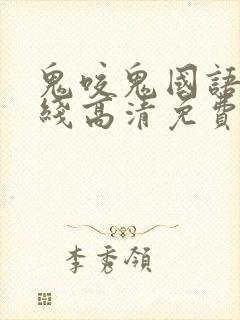 鬼咬鬼國語
綫高清免費
李秀領